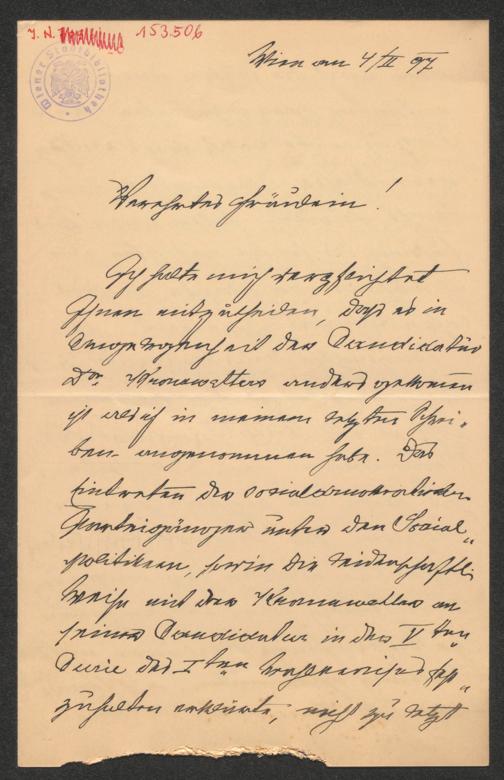 J. N. 153.506
Wiener Stadtbibliothek
Wien am 4/II 97
Verehrtes Fräulein!
Ich halte mich verpflichtet
Ihnen mitzutheilen, daß es in
Angelegenheit der Candidatur
Dr. Kronawetters anders gekommen
ist als ich in meinem letzten Schrei-
ben angenommen habe. Das
Eintreten der socialdemokratischen
Parteigänger unter den Social-
politikern, sowie die leidenschaftl.
Weise mit der Kronawetter an
seiner Candidatur in der V ten
Curie des I ten Wahlkreises fest-
zuhalten erklärte, nicht zu letzt